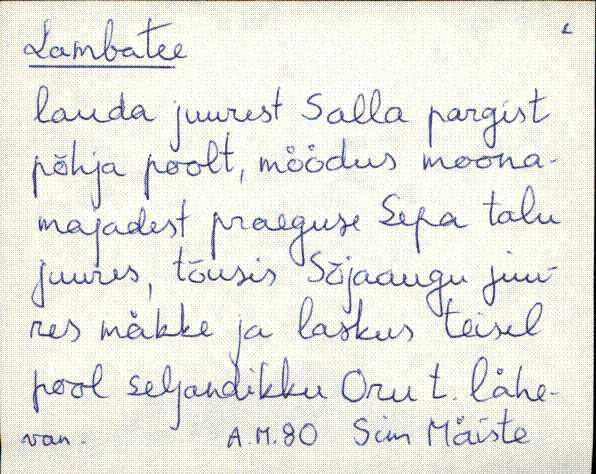 Lambatee 1
lauda juurest Salla pargist
põhja poolt, möödus moona-
majadest praeguse Sepa talu
juures, tõusis Sõjaaugu juu-
res mäkke ja laskus teisel
pool seljandikku Oru t. lähe-
van. A.M.80 Siim Mäiste